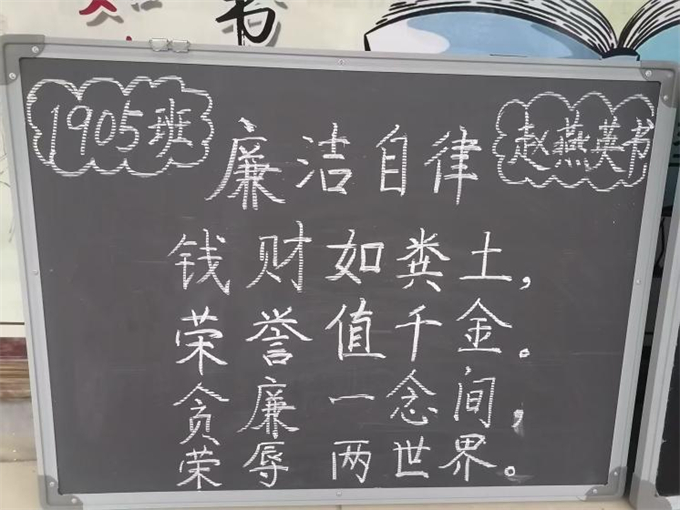 书
1905班
赵燕英书
廉洁自律
钱财如粪土,
荣誉值千金。
贪廉一念间,
荣辱两世界。